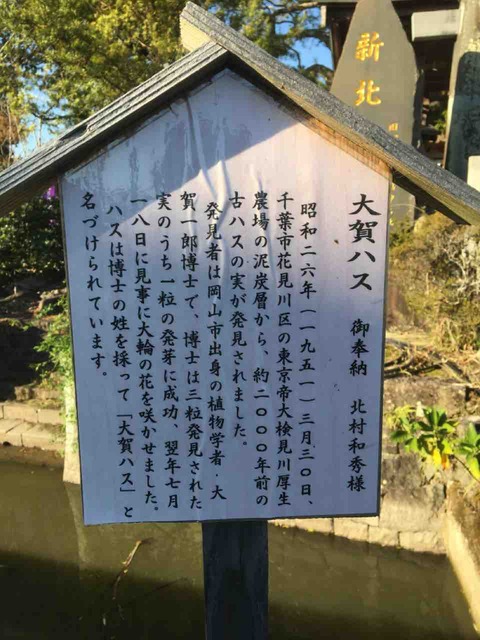 大賀ハス　御奉納　北村和秀様
昭和二六年（一九五一）三月三〇日、
千葉市花見川区の東京帝大検見川厚生
農場の泥炭層から、約二〇〇〇年前の
古ハスの実が発見されました。
発見者は岡山市出身の植物学者・大
賀一郎博士で、博士は三粒発見された
実のうち一粒の発芽に成功、翌年七月
一八日に見事に大輪の花を咲かせました。
ハスは博士の姓を採って「大賀ハス」と
名づけられています。
新北